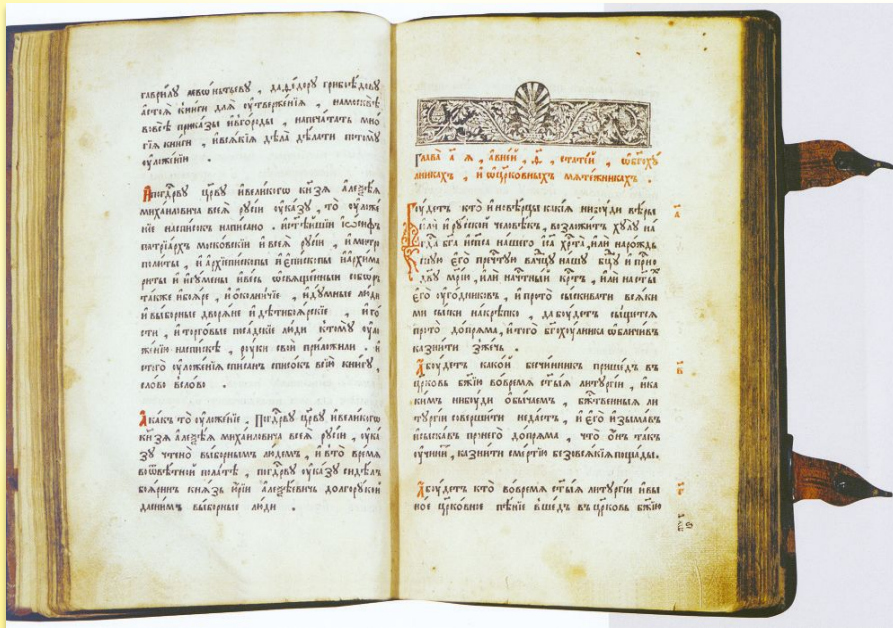 гаврилу левѡнтьеву , дадьѧкоу грибоѣдову
аѿтоѧ книги длѧ оутверженїѧ , намосквѣ
вовсѣ приказы ивгороды , напечатать мно
гїѧ книги , ивсѧкїѧ дѣла дѣлати потому
оуложенїю .
Апогⷭ҇дрву цр҃ву ивеликогѡ кн҃зѧ алеѯѣѧ
михаиловича всеѧ русїи оуказу , то оуложе
нїе насписокъ написано . исвѧтѣйшїи іѡсифъ
патрїархъ московскїи ивсеѧ русїи , имитро
политы , иархїепископы иепископы иархима
риты иигумены ивесь ѡсвѧщенныи соборъ
также ибоѧре , иоколничїе , идумные люди
ивыборные дворѧне идѣтибоѧрскїе , иго
сти , иторговые посадскїе люди ктому оуло
женїю насписокѣ , руки свои приложили . и
стогѡ оуложенїѧ списанъ списокъ вкнигу ,
слово вслово .
Акакъ то оуложенїе , Погⷭ҇дрву цр҃ву ивеликогѡ
кн҃зѧ алеѯѣѧ михаиловича всеѧ русїи , оука
зу чтено выборнымъ людемъ , ивто времѧ
вѿвѣтнои полатѣ , погⷭ҇дрву оуказу сидѣлъ
боѧринъ кнѧзь юрїи алеѯѣевичь долгорукои
даснимъ выборные люди .
Глава а҃ ѧ , авнеи , ѳ҃ , статеи , ѡбг҃оху
лникахъ , иѡцр҃ковныхъ мѧтежникахъ .
Будетъ кто ииновѣрцы какїѧ нибуди вѣры
или ирускои человѣкъ , возложитъ хулу на
гдⷭ҇а бг҃а испⷭ҇а нашего іс҃а хрⷭ҇та , или нарождь
шую его прчⷭ҇тую влⷣчцу нашу бцⷣу иприсно
дв҃у мр҃їю , или начтⷭ҇ныи крⷭ҇тъ , или наст҃ыхъ
его оугодниковъ , ипрото сыскивати всѧки
ми сыски накрѣпко , дабудетъ сыщетсѧ
прото допрѧма , итого бг҃охулника ѡбличивъ
казнити зжечь .
а҃
Абудетъ какои безчинникъ пришедъ въ
цр҃ковь бж҃їю вовремѧ ст҃ыѧ литургїи , ика
кимъ нибуди обычаемъ , бжⷭ҇твенныѧ ли
тургїи совершити недастъ , иего изымавъ
исыскавъ пронего допрѧма , что онъ такъ
оучинитъ , казнити смертїю безовсѧкїѧ пощады .
в҃
Абудетъ кто вовремѧ ст҃ыѧ литургїи ивы
ное цр҃ковное пѣнїе вшедъ въ цр҃ковь бж҃їю
г҃